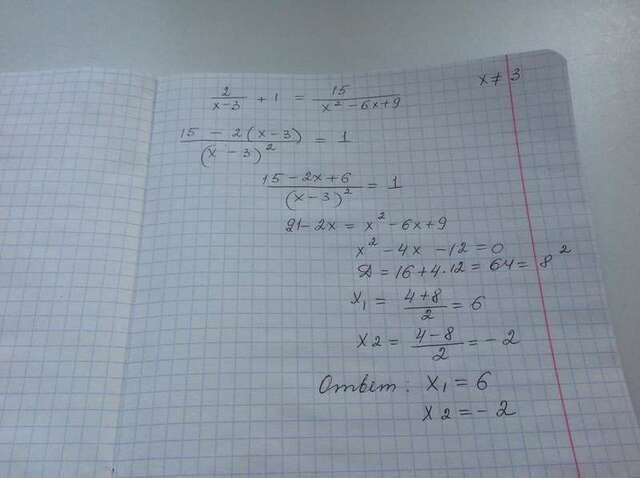 2/(x-3) + 1 = 15/(x² - 6x + 9) x ≠ 3
(15 - 2(x-3))/(x-3)² = 1
(15 - 2x + 6)/(x-3)² = 1
21 - 2x = x² - 6x + 9
x² - 4x - 12 = 0
D = 16 + 4·12 = 64 = 8²
x₁ = (4+8)/2 = 6
x2 = (4-8)/2 = -2
Ответ: x₁ = 6
x2 = -2